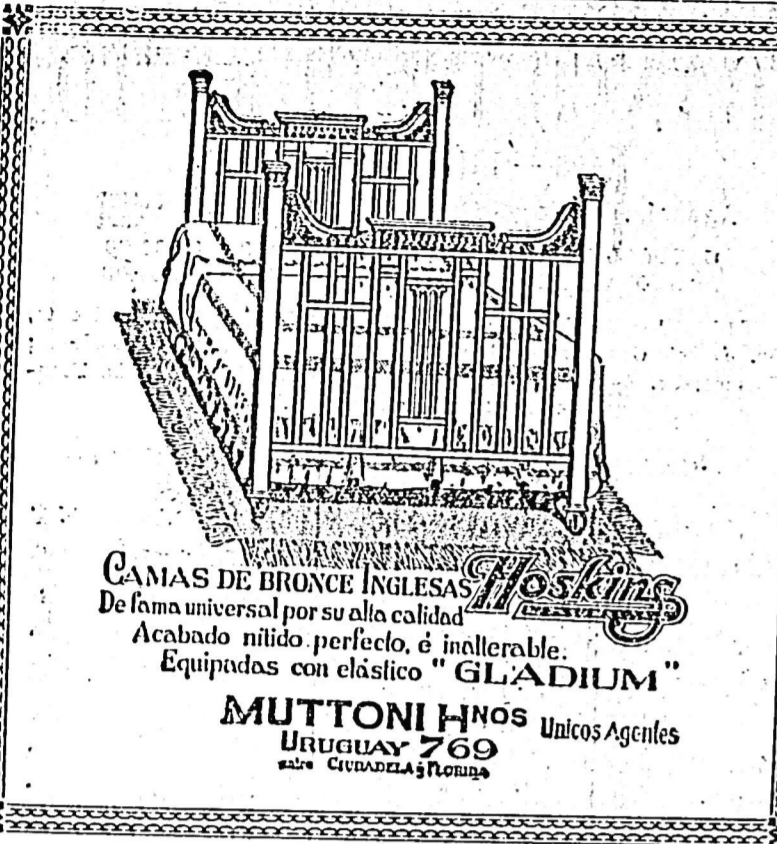 CAMAS DE BRONCE INGLESAS Hoskins
De fama universal por su alta calidad
Acabado nítido perfecto, é inalterable.
Equipadas con elástico "GLADIUM"
MUTTONI HNOS Unicos Agentes
URUGUAY 769
entre CIUDADELA y FLORIDA